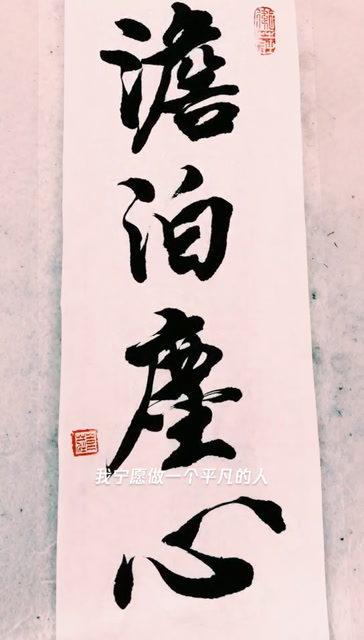 澹
泊
塵
心
我宁愿做一个平凡的人